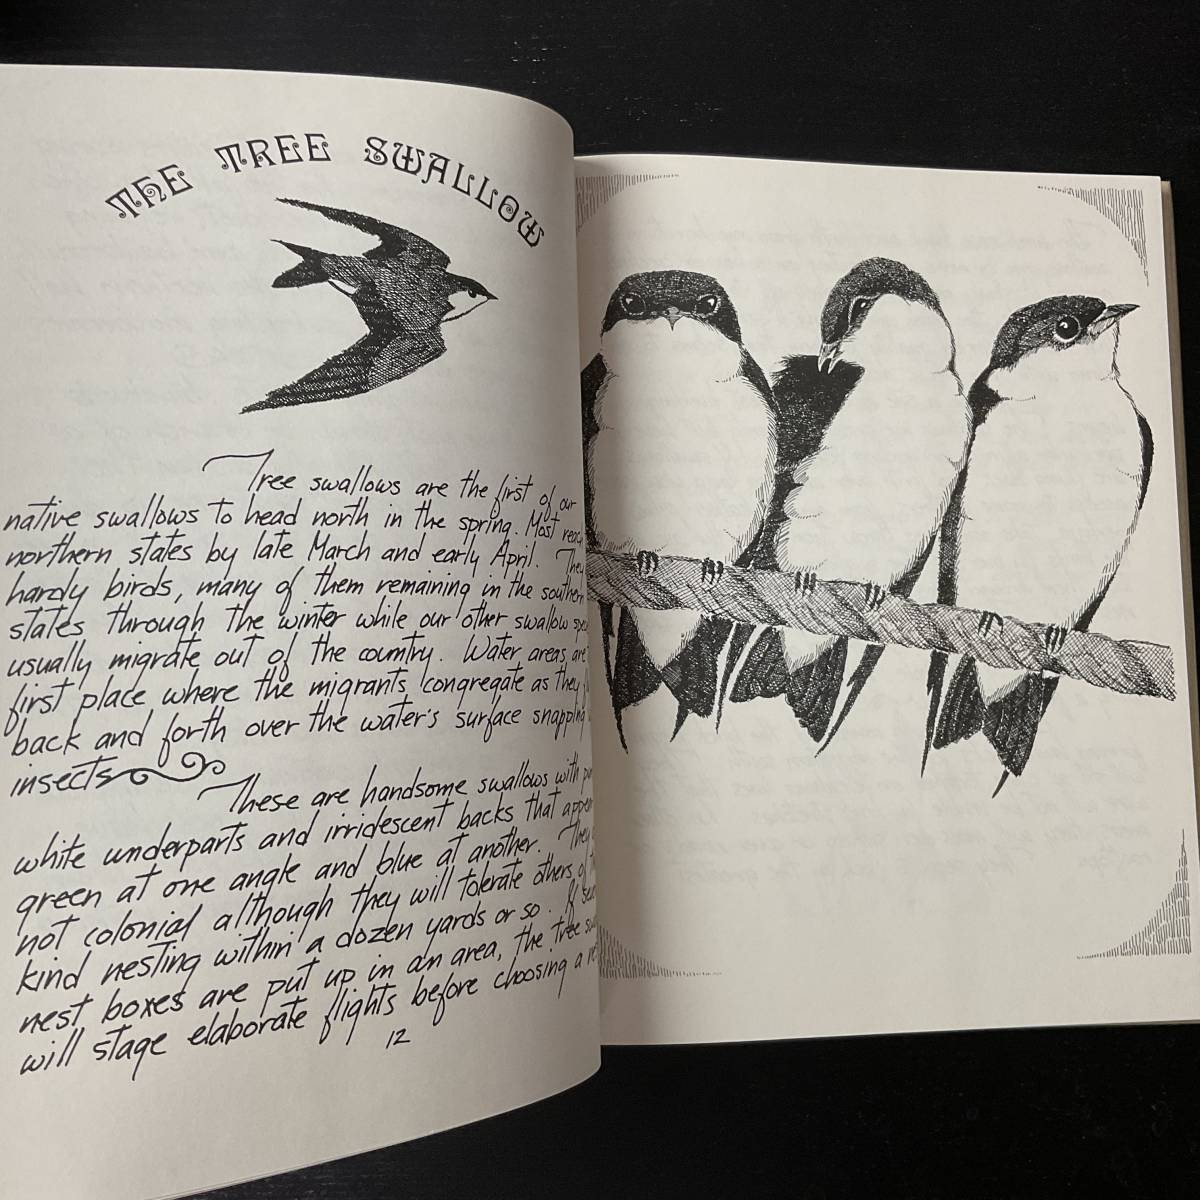 THE TREE SWALLOW
Tree swallows are the first of our
native swallows to head north in the spring. Most reach
northern states by late March and early April. They
hardy birds, many of them remaining in the southern
states through the winter while our other swallow
usually migrate out of the country. Water areas are
first place where the migrants congregate as they
back and forth over the water's surface snapping
insects
These are handsome swallows with
white underparts and irridescent backs that appear
green at one angle and blue at another. They
not colonial although they will tolerate others of
kind nesting within a dozen yards or so. If
nest boxes are put up in an area, the tree
will stage elaborate flights before choosing a
12